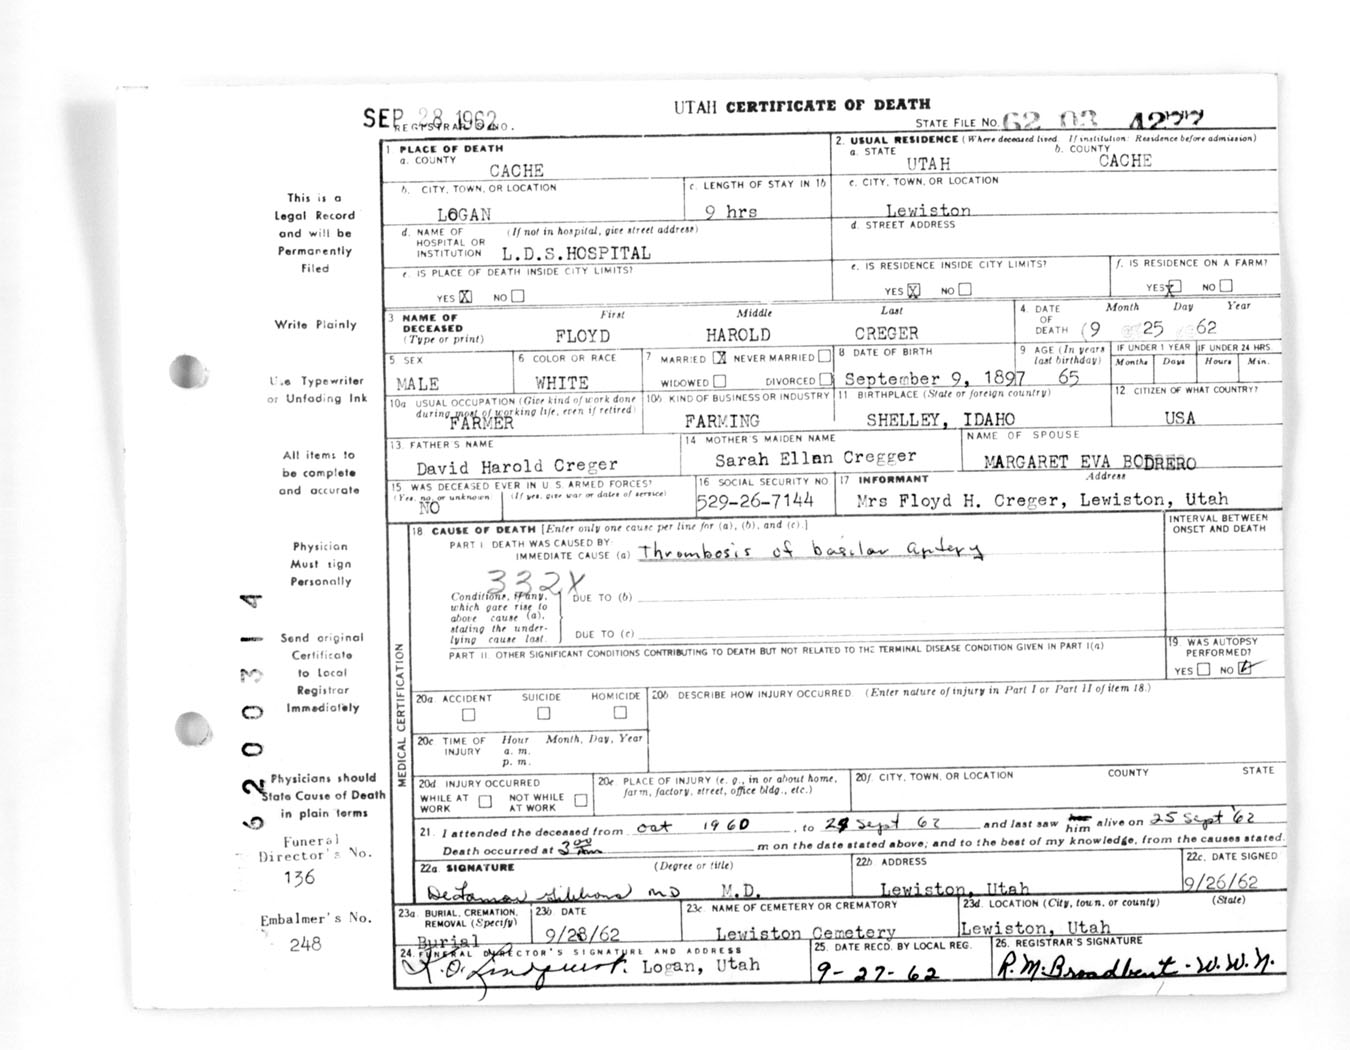 UTAH CERTIFICATE OF DEATH
SEP 28 1962
REGISTRAR'S NO.
STATE FILE NO. 62 03 4277
1 PLACE OF DEATH
a. COUNTY
CACHE
2. USUAL RESIDENCE (Where deceased lived. If institution: Residence before admission)
a. STATE
UTAH
b. COUNTY
CACHE
b. CITY, TOWN, OR LOCATION
LOGAN
c. LENGTH OF STAY IN 1b
9 hrs
c. CITY, TOWN, OR LOCATION
Lewiston
d. NAME OF HOSPITAL OR INSTITUTION
(If not in hospital, give street address)
L.D.S.HOSPITAL
d. STREET ADDRESS
e. IS PLACE OF DEATH INSIDE CITY LIMITS?
YES X NO
e. IS RESIDENCE INSIDE CITY LIMITS?
YES X NO
f. IS RESIDENCE ON A FARM?
YES X NO
3 NAME OF DECEASED (Type or print)
First Middle Last
FLOYD HAROLD CREGER
4. DATE OF DEATH
Month Day Year
(9 25 62
5 SEX
MALE
6 COLOR OR RACE
WHITE
7 MARRIED X NEVER MARRIED
WIDOWED DIVORCED
8 DATE OF BIRTH
September 9, 1897
9 AGE (In years last birthday)
65
IF UNDER 1 YEAR
Months Days
IF UNDER 24 HRS.
Hours Min.
10a USUAL OCCUPATION (Give kind of work done during most of working life, even if retired)
FARMER
10b KIND OF BUSINESS OR INDUSTRY
FARMING
11 BIRTHPLACE (State or foreign country)
SHELLEY, IDAHO
12 CITIZEN OF WHAT COUNTRY?
USA
13. FATHER'S NAME
David Harold Creger
14 MOTHER'S MAIDEN NAME
Sarah Ellan Cregger
NAME OF SPOUSE
MARGARET EVA BODRERO
15 WAS DECEASED EVER IN U.S. ARMED FORCES?
(Yes, no, or unknown) (If yes, give war or dates of service)
NO
16 SOCIAL SECURITY NO.
529-26-7144
17 INFORMANT Address
Mrs Floyd H. Creger, Lewiston, Utah
18 CAUSE OF DEATH [Enter only one cause per line for (a), (b), and (c).]
INTERVAL BETWEEN ONSET AND DEATH
PART I. DEATH WAS CAUSED BY:
IMMEDIATE CAUSE (a) Thrombosis of basilar artery
332X
Conditions, if any, which gave rise to above cause (a), stating the underlying cause last.
DUE TO (b)
DUE TO (c)
PART II. OTHER SIGNIFICANT CONDITIONS CONTRIBUTING TO DEATH BUT NOT RELATED TO THE TERMINAL DISEASE CONDITION GIVEN IN PART I(a)
19 WAS AUTOPSY PERFORMED?
YES NO
MEDICAL CERTIFICATION
20a ACCIDENT SUICIDE HOMICIDE
20b DESCRIBE HOW INJURY OCCURRED (Enter nature of injury in Part I or Part II of item 18.)
20c TIME OF INJURY
Hour Month, Day, Year
a. m.
p. m.
20d INJURY OCCURRED
WHILE AT WORK NOT WHILE AT WORK
20e PLACE OF INJURY (e. g., in or about home, farm, factory, street, office bldg., etc.)
20f. CITY, TOWN, OR LOCATION COUNTY STATE
21. I attended the deceased from Oct 1960, to 25 Sept 62 and last saw him alive on 25 Sept 62
Death occurred at 3 00 am m on the date stated above; and to the best of my knowledge, from the causes stated.
22a. SIGNATURE (Degree or title)
DeLamar Gibbons MD M.D.
22b ADDRESS
Lewiston, Utah
22c. DATE SIGNED
9/26/62
23a. BURIAL, CREMATION, REMOVAL (Specify)
Burial
23b DATE
9/28/62
23c. NAME OF CEMETERY OR CREMATORY
Lewiston Cemetery
23d. LOCATION (City, town, or county) (State)
Lewiston, Utah
24. FUNERAL DIRECTOR'S SIGNATURE AND ADDRESS
Logan, Utah
25. DATE RECD. BY LOCAL REG.
9-27-62
26. REGISTRAR'S SIGNATURE
R.M. Broadbent - W.W.N.
This is a
Legal Record
and will be
Permanently
Filed
Write Plainly
Use Typewriter
or Unfading Ink
All items to
be complete
and accurate
Physician
Must sign
Personally
Send original
Certificate
to Local
Registrar
Immediately
Physicians should
State Cause of Death
in plain terms
Funeral
Director's No.
136
Embalmer's No.
248
62003 14